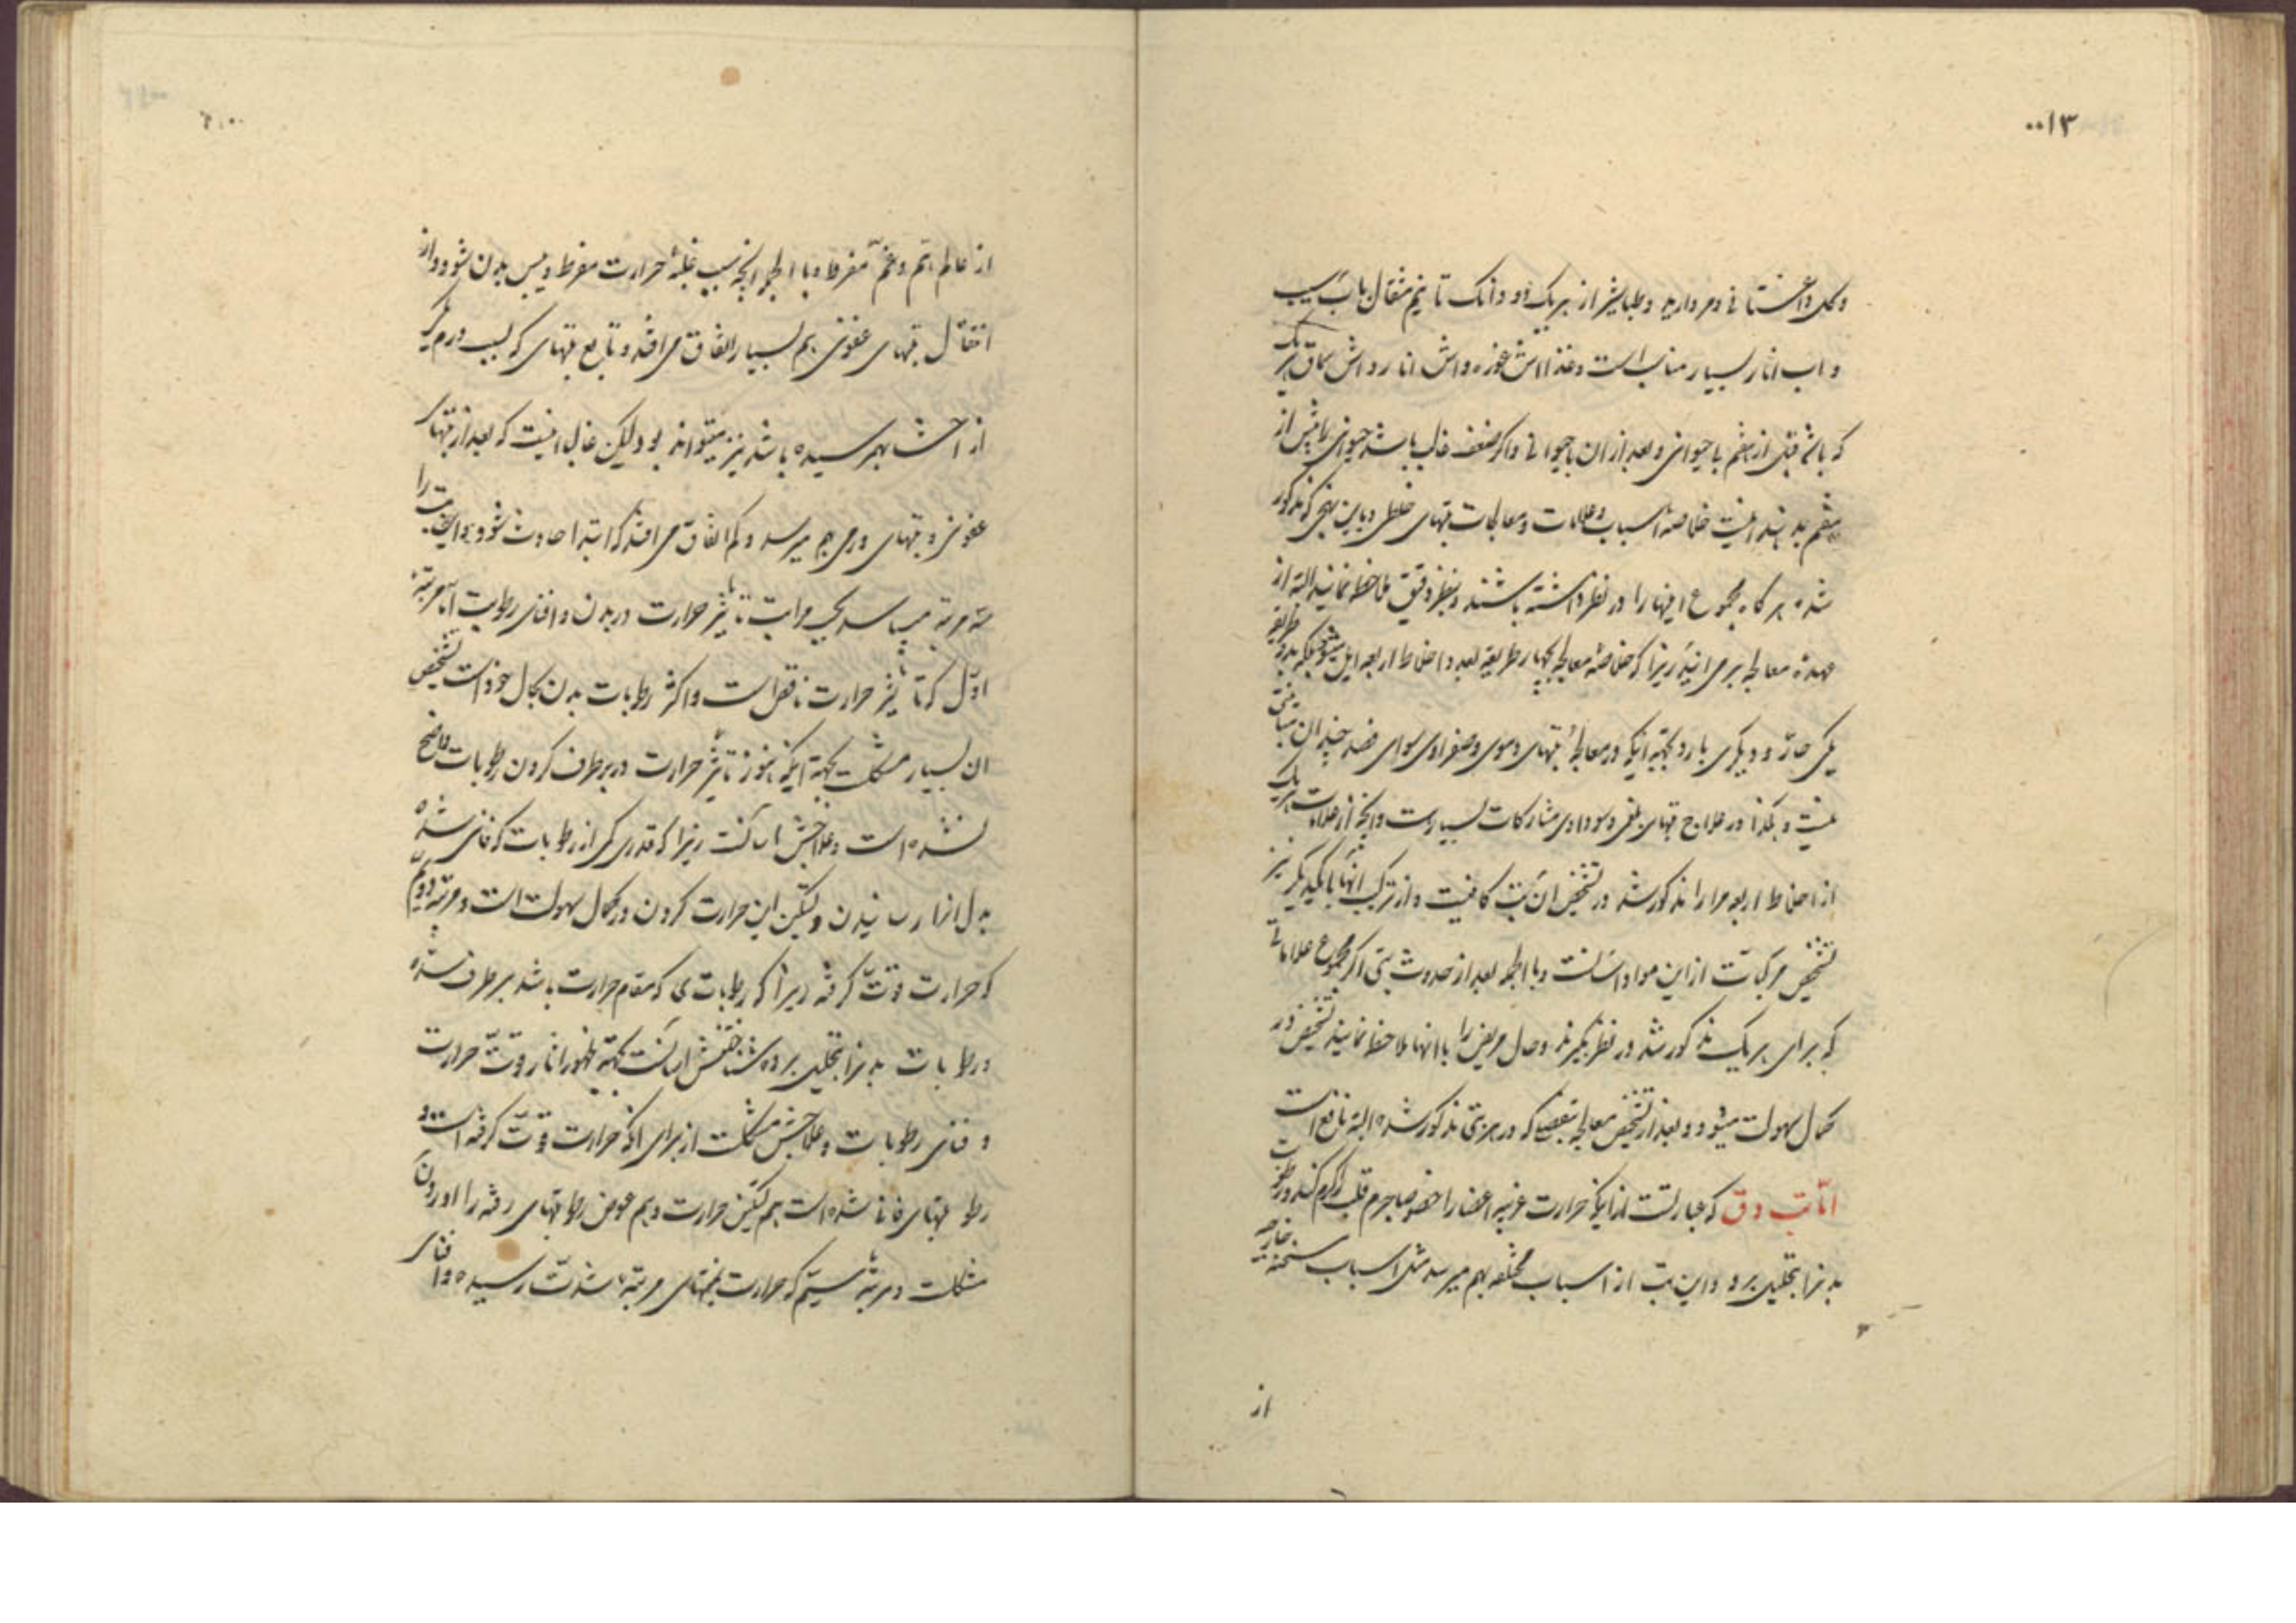 ۰۰۱۳
وکل داغستانی و مروارید و طباشیر از هریک دو دانک تا نیم مثقال باب سیب
و اب انار بسیار مناسب است و غذا اش غوزه و اش انار و اش سماق هریک
که باشد قبل از هفتم با حیوانی و بعد از ان باحیوانی و اکر ضعف غالب باشد حیوانی را پیش از
هفتم بدهند اینست خلاصه اسباب و علامات و معالجات تبهای خلطی و باین نهجی که مذکور
شد هرکاه مجموع اینها را در نظر داشته باشند و بنظر دقیق ملاحظه نمایند البته از
عهده معالجه برمی ایند زیرا که خلاصه معالجه بچهار طریقه بعدد اخلاط اربعه ایل میشود بلکه بدو طریقه
یکی حار و دیکری بارد بجهة اینکه در معالجهٔ تبهای دموی و صفراوی سوای فصد چندان مباینتی
نیست و هکذا در علاج تبهای بلغمی و سوداوی مشارکات بسیار است و انچه از علامات هریک
از اخلاط اربعه مرارا مذکور شد در تشخیص ان تب کافیست و از ترکیب انها با یکدیکر نیز
تشخیص مرکبات از این مواد اسانست و بالجمله بعد از حدوث تبی اکر مجموع علاماتی
که برای هریک مذکور شد در نظر بکیرند و حال مریض را باانها ملاحظه نمایند تشخیص در
کمال سهولت میشود و بعد از تشخیص معالجه بتفصیلی که در هر تبی مذکور شده البته نافع است
اما تب دق که عبارتست از اینکه حرارت غریبه اعضا را خصوصا جرم قلب را کرم کند و رطوبت
بدنرا بتحلیل برد و این تب از اسباب مختلفه بهم میرسد مثل اسباب مسخنه خارجیه
از
از عالم هم و غم مفرط و بالجمله انچه سبب غلبهٔ حرارت مفرط و یبس بدن شود و از
انتقال تبهای عفونی هم بسیار اتفاق می افتد و تابع تبهای که بسبب ورم یکی
از احشا بهم رسیده باشد نیز میتواند بود لیکن غالب اینست که بعد از تبهای
عفونی و تبهای ورمی بهم میرسد و کم اتفاق می افتد که ابتدا حادث شود و این تب را
سه مرتبه میباشد بحسب مراتب تاثیر حرارت در بدن و افنای رطوبت اما مرتبه
اول که تاثیر حرارت ناقص است و اکثر رطوبات بدن بحال خود است تشخیص
ان بسیار مشکلست بجهة اینکه هنوز تاثیر حرارت در برطرف کردن رطوبات واضح
نشده است و علاجش اسانست زیرا که قدری کمی از رطوبات که فانی شده
بدل انرا رسانیدن و تسکین این حرارت کردن در کمال سهولت است و مرتبه دویم
که حرارت قوت کرفته زیرا که رطوبات ی که مقاوم حرارت باشد برطرف شده
و رطوبات بدنرا بتحلیل برده شناختنش اسانست بجهة ظهور اثار قوت حرارت
و فنای رطوبات و علاجش مشکلست از برای انکه حرارت قوت کرفته است و
رطوبتهای فانی شده است هم تسکین حرارت و هم عوض رطوبتهای رفته را اوردن
مشکلست و مرتبه سیم که حرارت بمنتهای مرتبه شدت رسیده و افنای